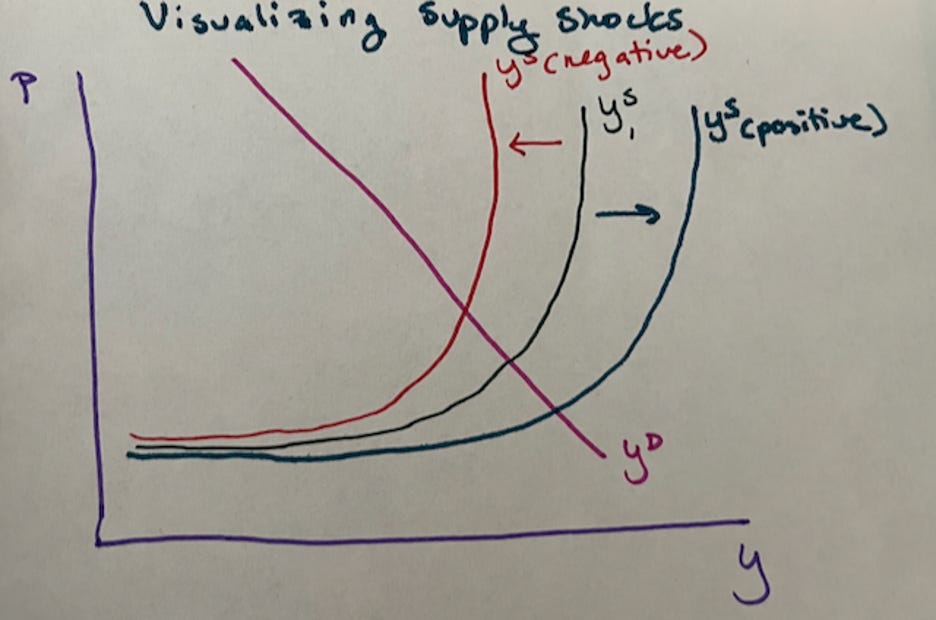 Visualizing Supply Shocks
P
y^s (negative)
y_1^s
y^s (positive)
y^D
y